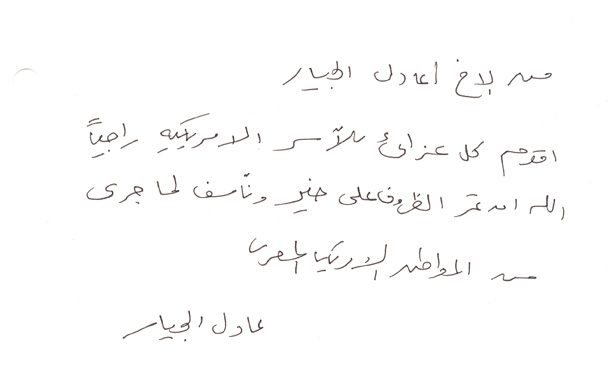 من الاخ اعادل الجيار
اقدم كل عزائ للأسر الامريكيه راجياً
الله ان تمر الظروف على خير ونأسف لما جرى
من المواطن الامريكي المصرى
عادل الجيار